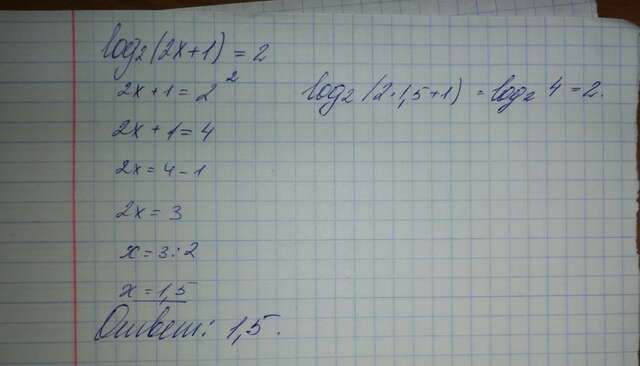 log₂(2x+1) = 2
2x+1 = 2²
log₂(2·1,5+1) = log₂ 4 = 2.
2x+1=4
2x=4-1
2x=3
x=3:2
x=1,5
Ответ: 1,5.